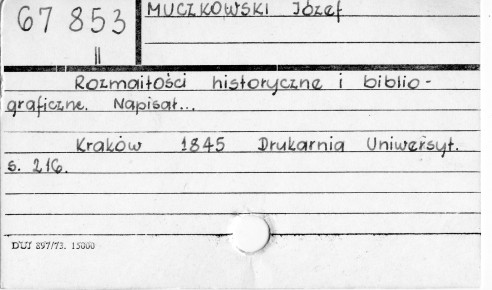 67 853
II
MUCZKOWSKI Józef
Rozmaitości historyczne i biblio-
graficzne. Napisał...
Kraków 1845 Drukarnia Uniwersyt.
s. 216.
DUJ 897/73. 15000